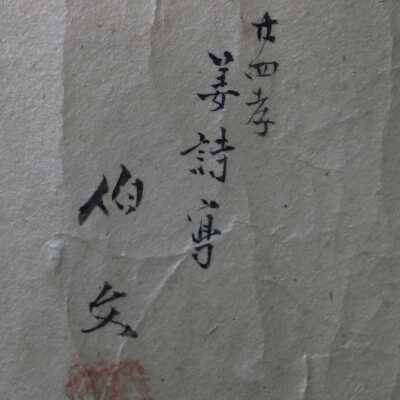 廿四孝
姜詩寫
伯文